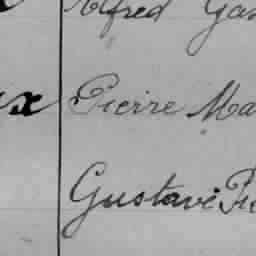 Alfred
x Pierre Ma
Gustave